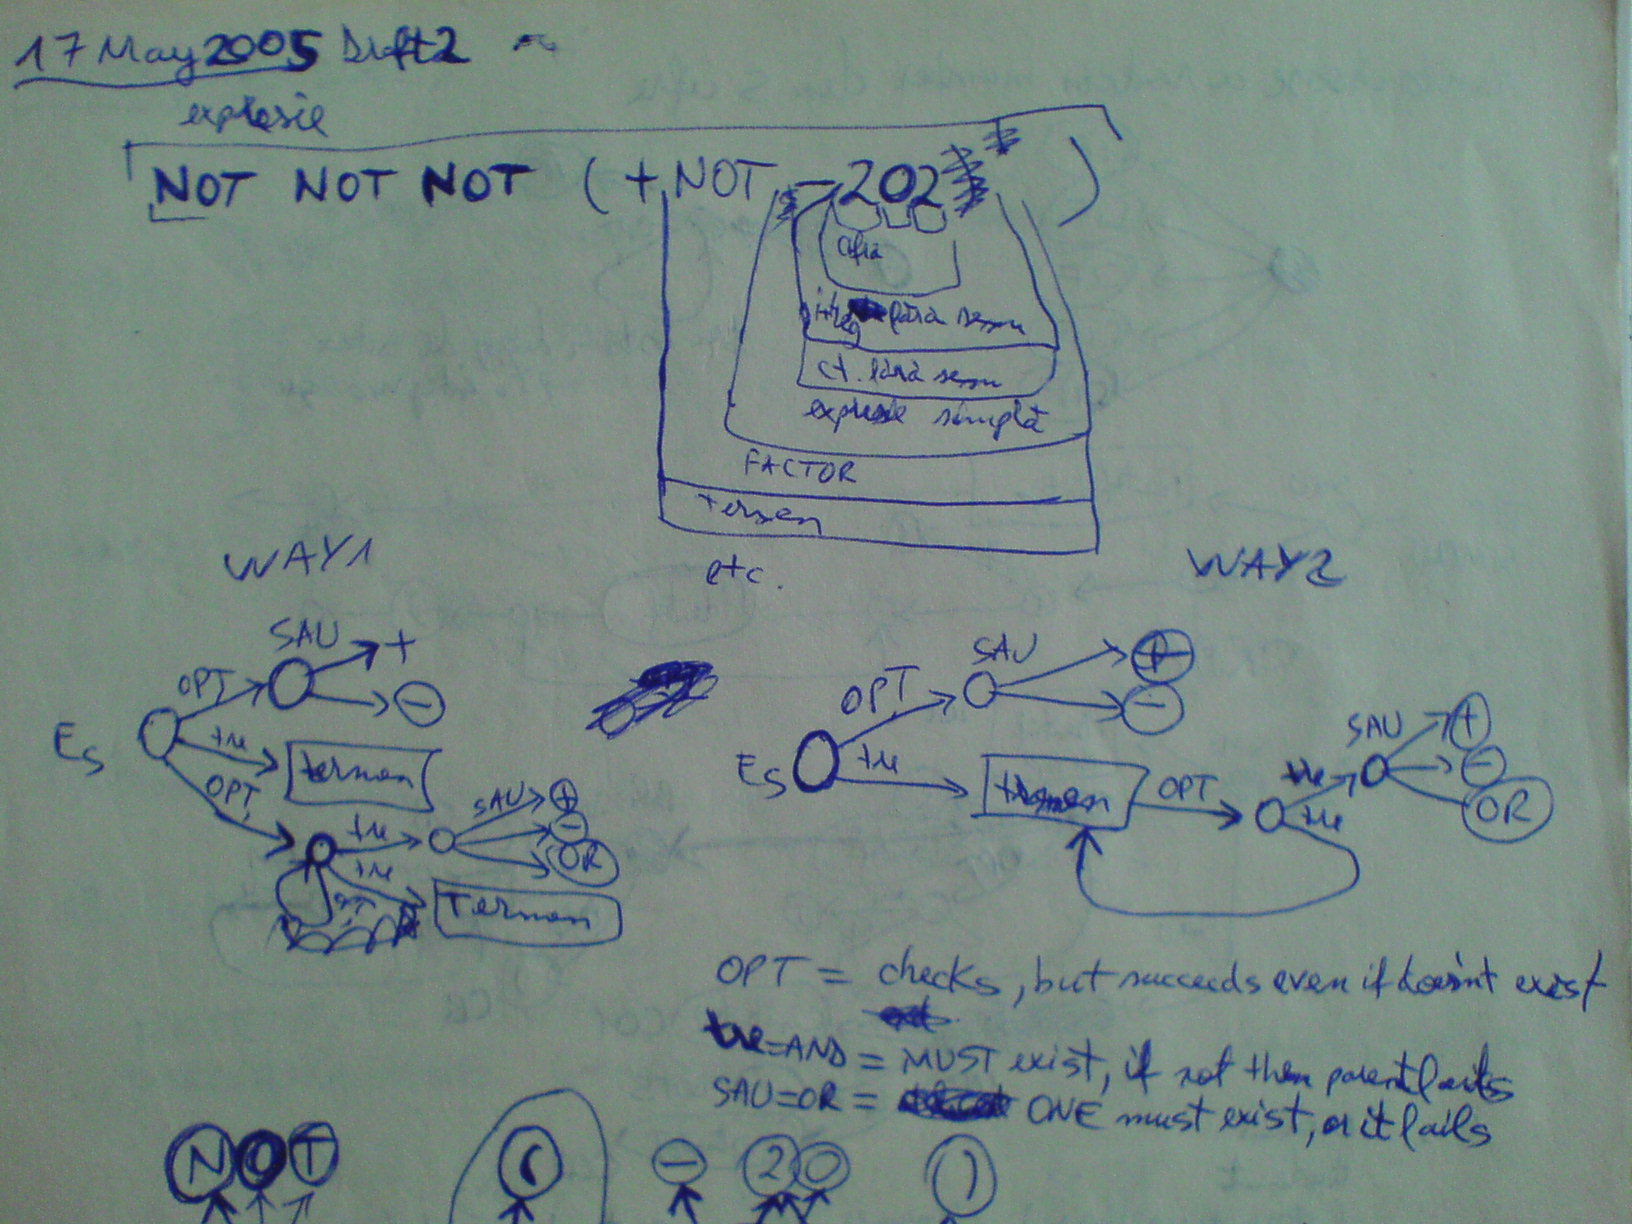 17 May 2005 Draft 2
expresie
NOT NOT NOT ( + NOT - 202 )
Cifra
întreg fără semn
ct. fără semn
expresie simplă
FACTOR
termen
etc.
WAY1
WAY2
SAU
+
OPT
-
Es
tre
termen
OPT
tre
SAU
+
-
OR
tre
Termen
SAU
+
OPT
-
Es
tre
termen
OPT
tre
SAU
+
-
OR
tre
OPT = checks, but succeeds even if doesn't exist
tre=AND = MUST exist, if not then parent fails
SAU=OR = ONE must exist, or it fails
N O T ( - 2 0 )